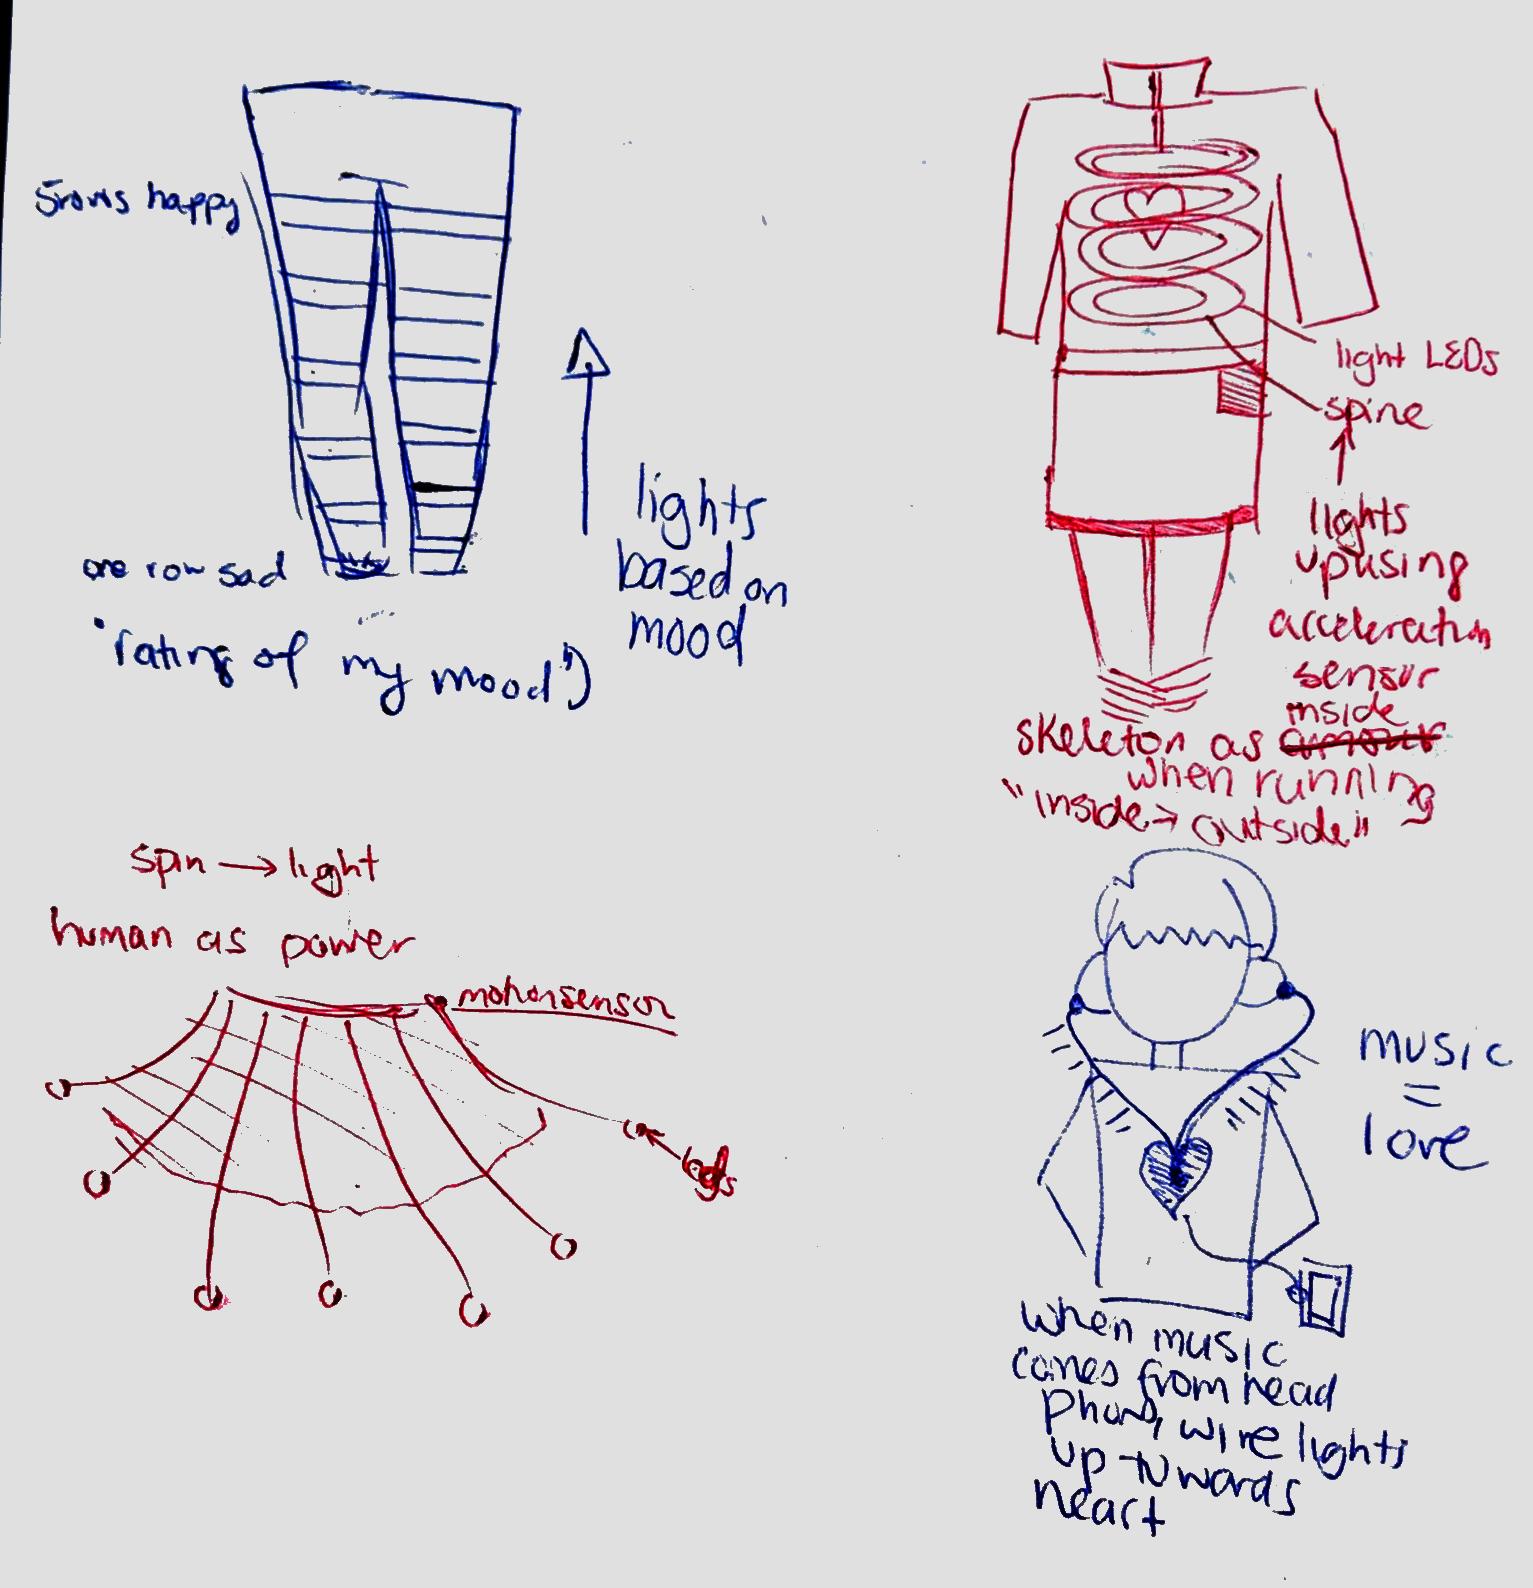 5 rows happy
one row sad
"rating of my mood")
lights
based on
mood
light LEDs
spine
lights
up using
acceleration
sensor
inside
skeleton as armour
when running
"inside → outside"
spin → light
human as power
motion sensor
music
=
love
when music
comes from head
phone, wire lights
up towards
heart